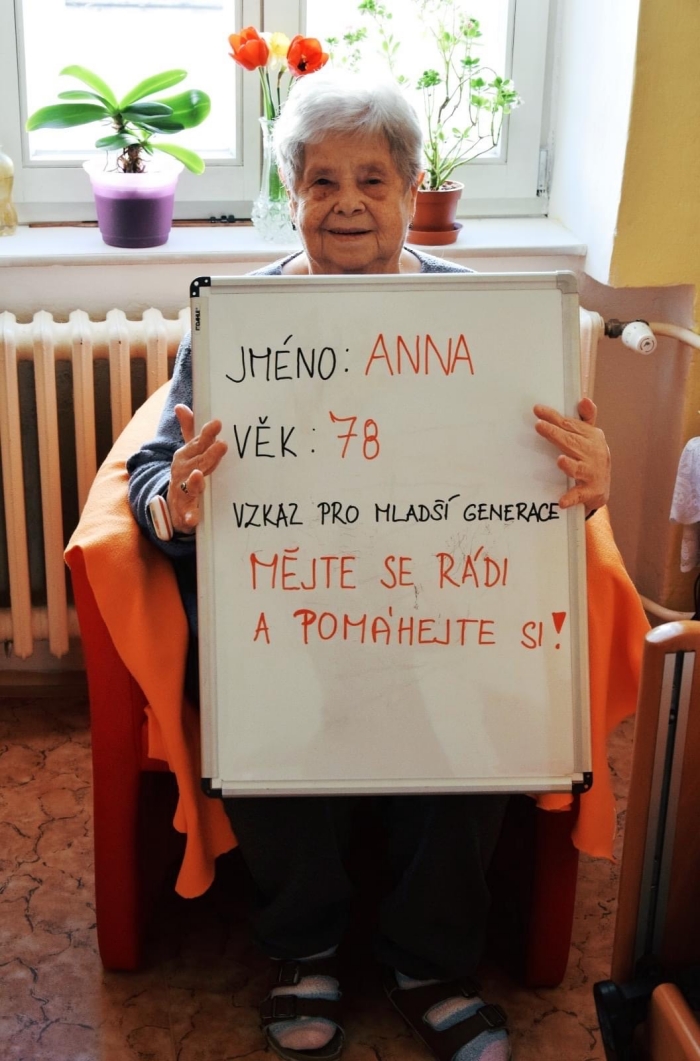 JMÉNO: ANNA
VĚK: 78
VZKAZ PRO MLADŠÍ GENERACE
MĚJTE SE RÁDI
A POMÁHEJTE SI!